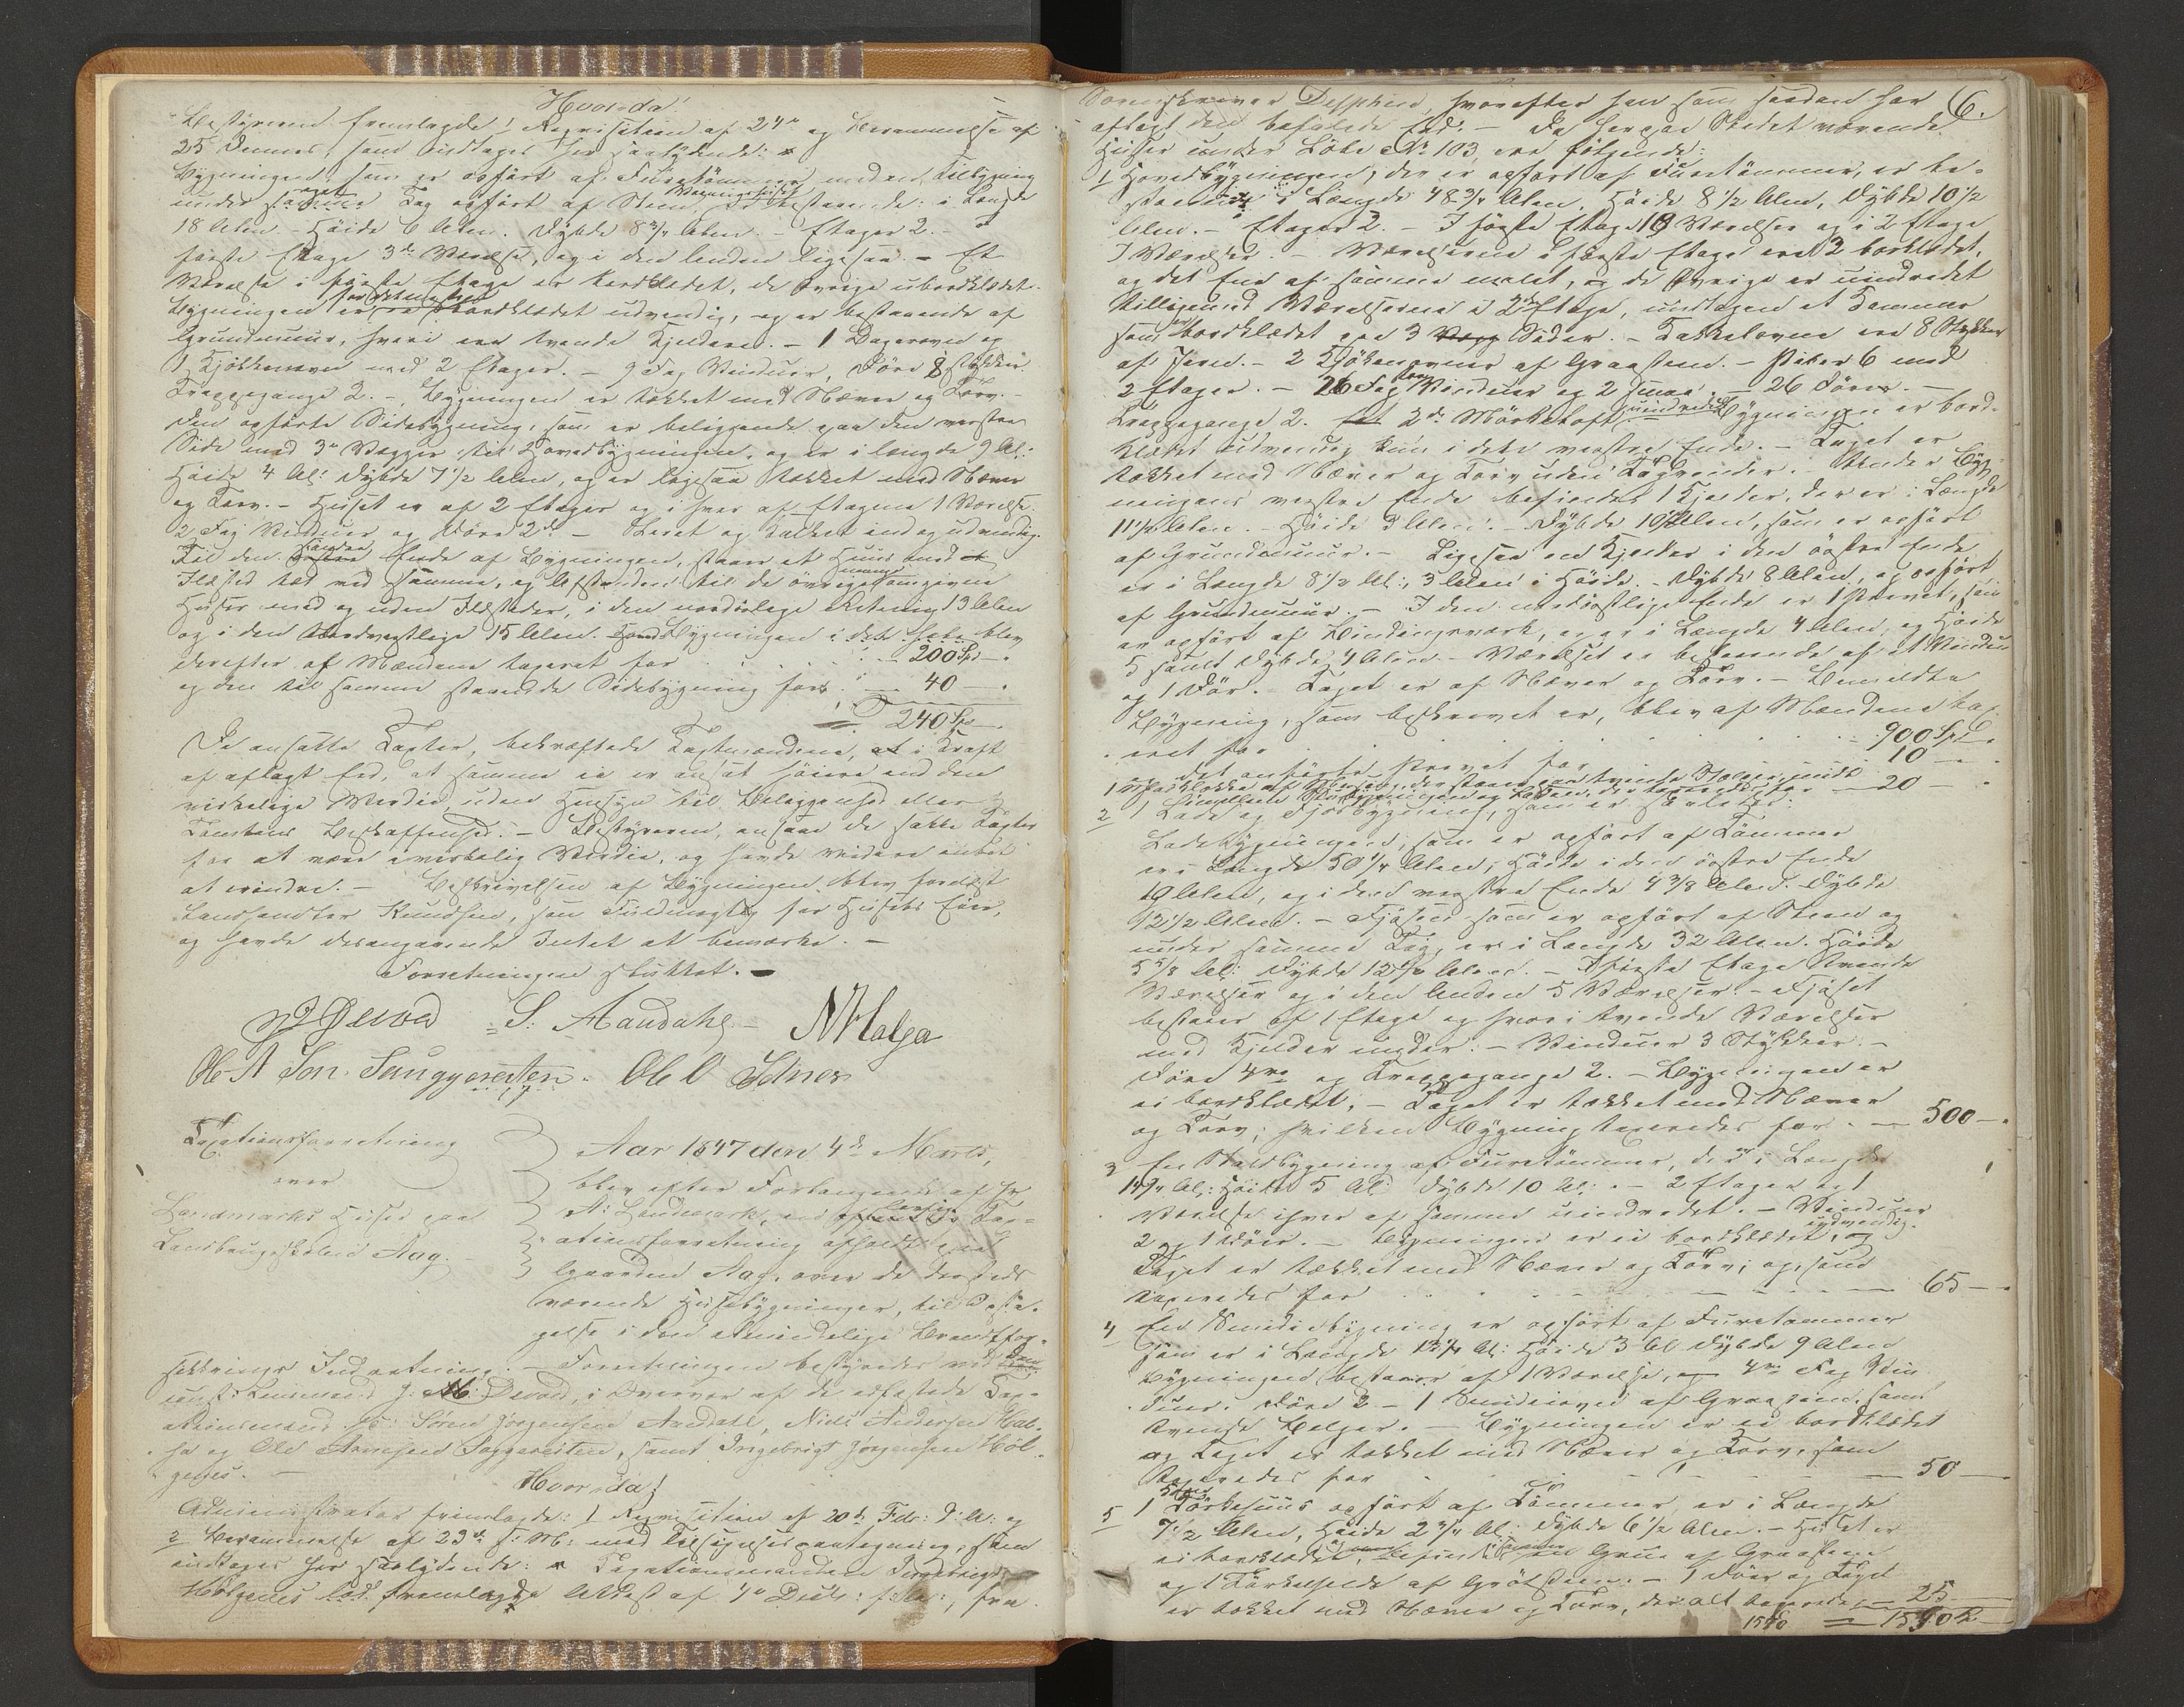 Hvorda!
Bestyreren fremlagde 1 Reqvisition af 24de og Berammelse af
25 Dennes, som indtages her saalydende:
Bygningen, som er opført af Furutømmer med en Tilbygning
under samme Tag opført af Steen, bestaaende: i Længde
18 Alen. - Høide 6 Alen. Dybde 8 3/4 Alen. - Etager 2. - I
første Etage 3de Værelser, og i den anden ligesaa. - Et
Værelse i første Etage er bordklædet, de øvrige ubordklædet.
Bygningen er bordklædet udvendig, og er bestaaende af
Grundmuur, hvori ere tvende Kjeldere. - 1 Bagerovn og
1 Kjøkkenovn med 2 Etager. - 9 Fag Vinduer, Døre 8 Stykker.
Trappegange 2. - Bygningen er tækket med Næver og Torv. -
Den opførte Sidebygning, som er beliggende paa den vestre
Side med 3de Vægge til Hovedbygningen, og er i Længde 9 Al:
Høide 4 Al: Dybde 7 1/2 Alen, og er ligesaa tækket med Næver
og Torv. - Huset er af 2 Etager og i hver af Etagene 1 Værelse.
2 Fag Vinduer og Døre 2de. - Leret og kalket ind og udvendig.
Til den Ende af Bygningen, staaer et Huus med
Ildsted tæt ved samme, og Afstanden til de øvrige omgivne
Huser med og uden Ildsteder, i den nordøstlige Retning 13 Alen
og i den Nordvestlige 15 Alen. Bygningen i det hele blev
derefter af Mændene taxeret for . . . . - 200 Spd.
og den til samme staaende Sidebygning for - 40 -
240 Spd
De ansatte Taxter, bekræftede Taxtmændene, i Kraft
af aflagt Eed, at samme ei er ansat høiere end den
virkelige Værdie, uden Hensyn til Beliggenhed eller
Tomtens Beskaffenhed. - Bestyreren, ansaae de satte Taxter
for at være i virkelig Værdie, og havde videre intet
at erindre. - Beskrivelsen af Bygningen blev forelæst
Landhandler Knudsen, som Fuldmægtig for Husets Eier,
og havde desangaaende Intet at bemærke. -
Forretningen sluttet. -
J Devold S: Aandahl N Halsa
Ole A Søn Saugge Ole O
Taxationsforretning
over
Landmarks Huse paa
Landbrugsskolen Aag.
Aar 1847 den 4de Marts,
blev efter Forlangende af Hr
A: Landmark, Tax-
ationsforretning afholdt paa
Gaarden Aag, over de dersteds
værende Husebygninger, til Opta-
gelse i den almindelige Brandfor-
sikkrings Indretning. - Forretningen bestyredes ved
Lensmand J: M: Devold, i Overvær af de edfæstede Tax-
ationsmænd: Søren Jørgensen Aandahl, Niels Andersen Hal-
sa og Ole Arntsen Saggereiten, samt Ingebrigt Jørgensen Høl-
genes. -
Hvorda!
Administrator fremlagde: 1 Reqvisition af 20de Febr: d: A: og
2 Berammelse af 23de s: M: med Tilsigelsespaategning, som
indtages her saalydende: Taxationsmanden Ingebrigt
Hølgenes fremlagde Attest af 7de Decbr: f: A:, fra
6.
Sorenskriver Delphin, hvorefter han som saadan har
aflagt den befalede Eed. - De her paa Stedet værende
Huser under Løbe No 103, ere følgende:
1 Hovedbygningen, der er opført af Furutømmer, er be-
staaende i Længde 48 3/4 Alen, Høide 8 1/2 Alen, Dybde 10 1/2
Alen. - Etager 2. - I første Etage 10 Værelser og i 2 Etage
7 Værelser. - Værelserne i første Etage ere 3 bordklædet,
og det Ene af samme malet, og de øvrige er uindredet
tilligemed Værelserne i 2den Etage, undtagen et Kammer
som er bordklædet paa 3 Sider. - Kakkelovne ere 8 Stykker
af Jern. - 2 Kjøkenovner af Graasten. - Piber 6 med
2 Etager. - 26 Fag Vinduer og 2 smaae. - 26 Døre. -
Trappegange 2. 2de Mørkeloft uindredet. Bygningen er bord-
klædet udvendig kun i dets vestre Ende. - Taget er
tækket med Næver og Torv uden Tagrender. - Under Byg-
ningens vestre Ende befindes 1 Kjelder, der er i Længde
11 1/2 Alen. - Høide 3 Alen. - Dybde 10 Alen, som er opført
af Grundmuur. - Ligesaa en Kjelder i den østre Ende
er i Længde 8 1/2 Al:, 3 Alen i Høide. - Dybde 8 Alen, og opført
af Grundmuur. - I den nordøstlige Ende er 1 Privet, som
er opført af Bindingsværk, og er i Længde 4 Alen og Høide
5 samt Dybde 4 Alen. - Værelset er bestaaende af et Vindue
og 1 Dør. - Taget er af Næver og Torv. - Bemeldte
Bygning, som beskrevet er, blev af Mændene tax-
eret for . . . . - 900 Spd.
det anførte Privet for 10 -
1 Madklokke af staaer paa tvende Stolper, - 20 -
2 1 Lade og Fjøsbygning, som er saaledes:
Ladebygningen, som er opført af Tømmer
er i Længde 50 1/4 Alen, Høide i den østre Ende
10 Alen, og i den vestre Ende 4 3/8 Alen. Dybde
12 1/2 Alen. - Fjøsen som er opført af Steen og
under samme Tag, er i Længde 32 Alen. Høide
5 5/8 Al: Dybde 12 Alen. - I første Etage tvende
Værelser og i den Anden 5 Værelser. - Fjøset
bestaaer af 1 Etage og hvori tvende Værelser
med Kjelder under. - Vinduer 3 Stykker. -
Døre 4re og Trappegange 2. - Bygningen er
ei bordklædet. - Taget er tækket med Næver
og Torv; hvilken Bygning taxeredes for - 500 -
3 En Staldbygning af Furutømmer, der i Længde
14 3/4 Al: Høide 5 Al: Dybde 10 Al: - 2 Etager og 1
Værelse i hver af samme uindredet. - Vinduer
2 og 1 Dør. - Bygningen er ei bordklædet udvendig,
Taget er tækket med Næver og Torv; og, som
taxeredes for . . . . - 65 -
4 En Smidiebygning er opført af Furutømmer
som er i Længde 12 3/4 Al: Høide 3 Al: Dybde 9 Alen
Bygningen bestaaer af 1 Værelse, 4re Fag Vin-
duer. Døre 2 - 1 Smidieovn af Graasteen, samt
tvende Belger. - Bygningen er ei bordklædet
og Taget er tækket med Næver og Torv, som
taxeredes for - 50 -
5 1 Tørkehuus opført af Tømmer, er i Længde
7 1/2 Alen, Høide 2 3/4 Al: Dybde 6 1/2 Alen. - Huset er
ei bordklædet, Grue af Graasteen
og 1 Tørkehelle af - 1 Dør og Taget
er tækket med Næver og Torv, der alt taxeredes - 25
1570 1570